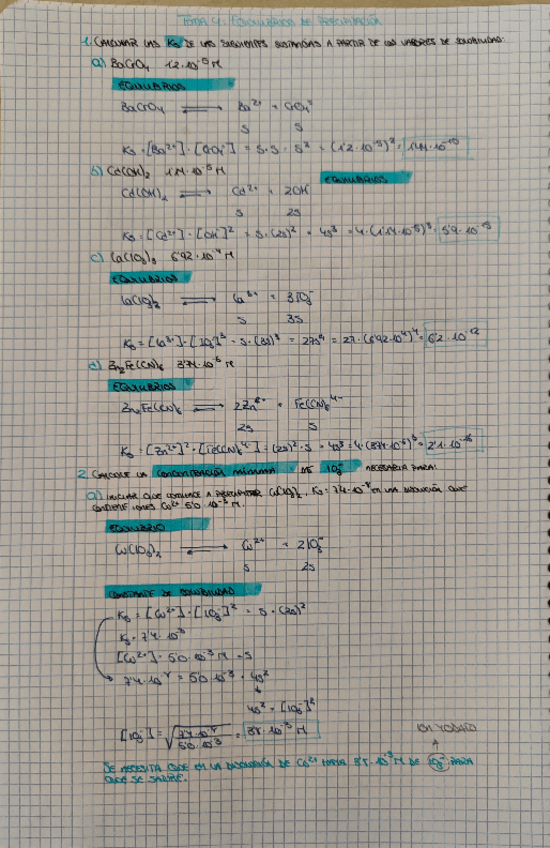 TEMA 4: EQUILIBRIOS DE PRECIPITACIÓN
1. CALCULAR LAS Ks DE LAS SIGUIENTES SUSTANCIAS A PARTIR DE LOS VALORES DE SOLUBILIDAD:
a) BaCrO4 1'2·10⁻⁵ M
EQUILIBRIOS
BaCrO4 ⇌ Ba²⁺ + CrO4²⁻
S S
Ks = [Ba²⁺]·[CrO4²⁻] = S·S = S² = (1'2·10⁻⁵)² = 1'44·10⁻¹⁰
b) Cd(OH)2 1'14·10⁻⁵ M
EQUILIBRIOS
Cd(OH)2 ⇌ Cd²⁺ + 2OH⁻
S 2S
Ks = [Cd²⁺]·[OH⁻]² = S·(2S)² = 4S³ = 4·(1'14·10⁻⁵)³ = 5'9·10⁻¹⁵
c) La(IO3)3 6'92·10⁻⁴ M
EQUILIBRIOS
La(IO3)3 ⇌ La³⁺ + 3IO3⁻
S 3S
Ks = [La³⁺]·[IO3⁻]³ = S·(3S)³ = 27S⁴ = 27·(6'92·10⁻⁴)⁴ = 6'2·10⁻¹²
d) Zn2Fe(CN)6 3'74·10⁻⁶ M
EQUILIBRIOS
Zn2Fe(CN)6 ⇌ 2Zn²⁺ + Fe(CN)6⁴⁻
2S S
Ks = [Zn²⁺]²·[Fe(CN)6⁴⁻] = (2S)²·S = 4S³ = 4·(3'74·10⁻⁶)³ = 2'1·10⁻¹⁶
2. CALCULE LA CONCENTRACIÓN MÍNIMA DE IO3⁻ NECESARIA PARA:
a) INICIAR QUE COMIENCE A PRECIPITAR Cu(IO3)2, Ks = 7'4·10⁻⁸ EN UNA DISOLUCIÓN QUE
CONTIENE IONES Cu²⁺ 5'0·10⁻³ M.
EQUILIBRIO
Cu(IO3)2 ⇌ Cu²⁺ + 2IO3⁻
S 2S
CONSTANTE DE SOLUBILIDAD
Ks = [Cu²⁺]·[IO3⁻]² = S·(2S)²
Ks = 7'4·10⁻⁸
[Cu²⁺] = 5'0·10⁻³ M = S
7'4·10⁻⁸ = 5'0·10⁻³·4S²
4S² = [IO3⁻]²
[IO3⁻] = √(7'4·10⁻⁸ / 5'0·10⁻³) = 3'8·10⁻³ M
ION YODATO
SE NECESITA QUE EN LA DISOLUCIÓN DE Cu²⁺ HAYA 3'8·10⁻³ M DE IO3⁻ PARA
QUE SE SATURE.